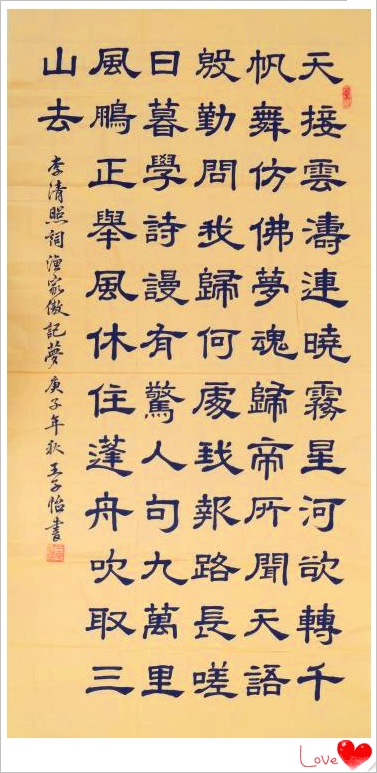 天接雲濤連曉霧星河欲轉千
帆舞仿佛夢魂歸帝所聞天語
殷勤問我歸何處我報路長嗟
日暮學詩謾有驚人句九萬里
風鵬正舉風休住蓬舟吹取三
山去
李清照詞漁家傲記夢庚子年秋王子怡書
Love